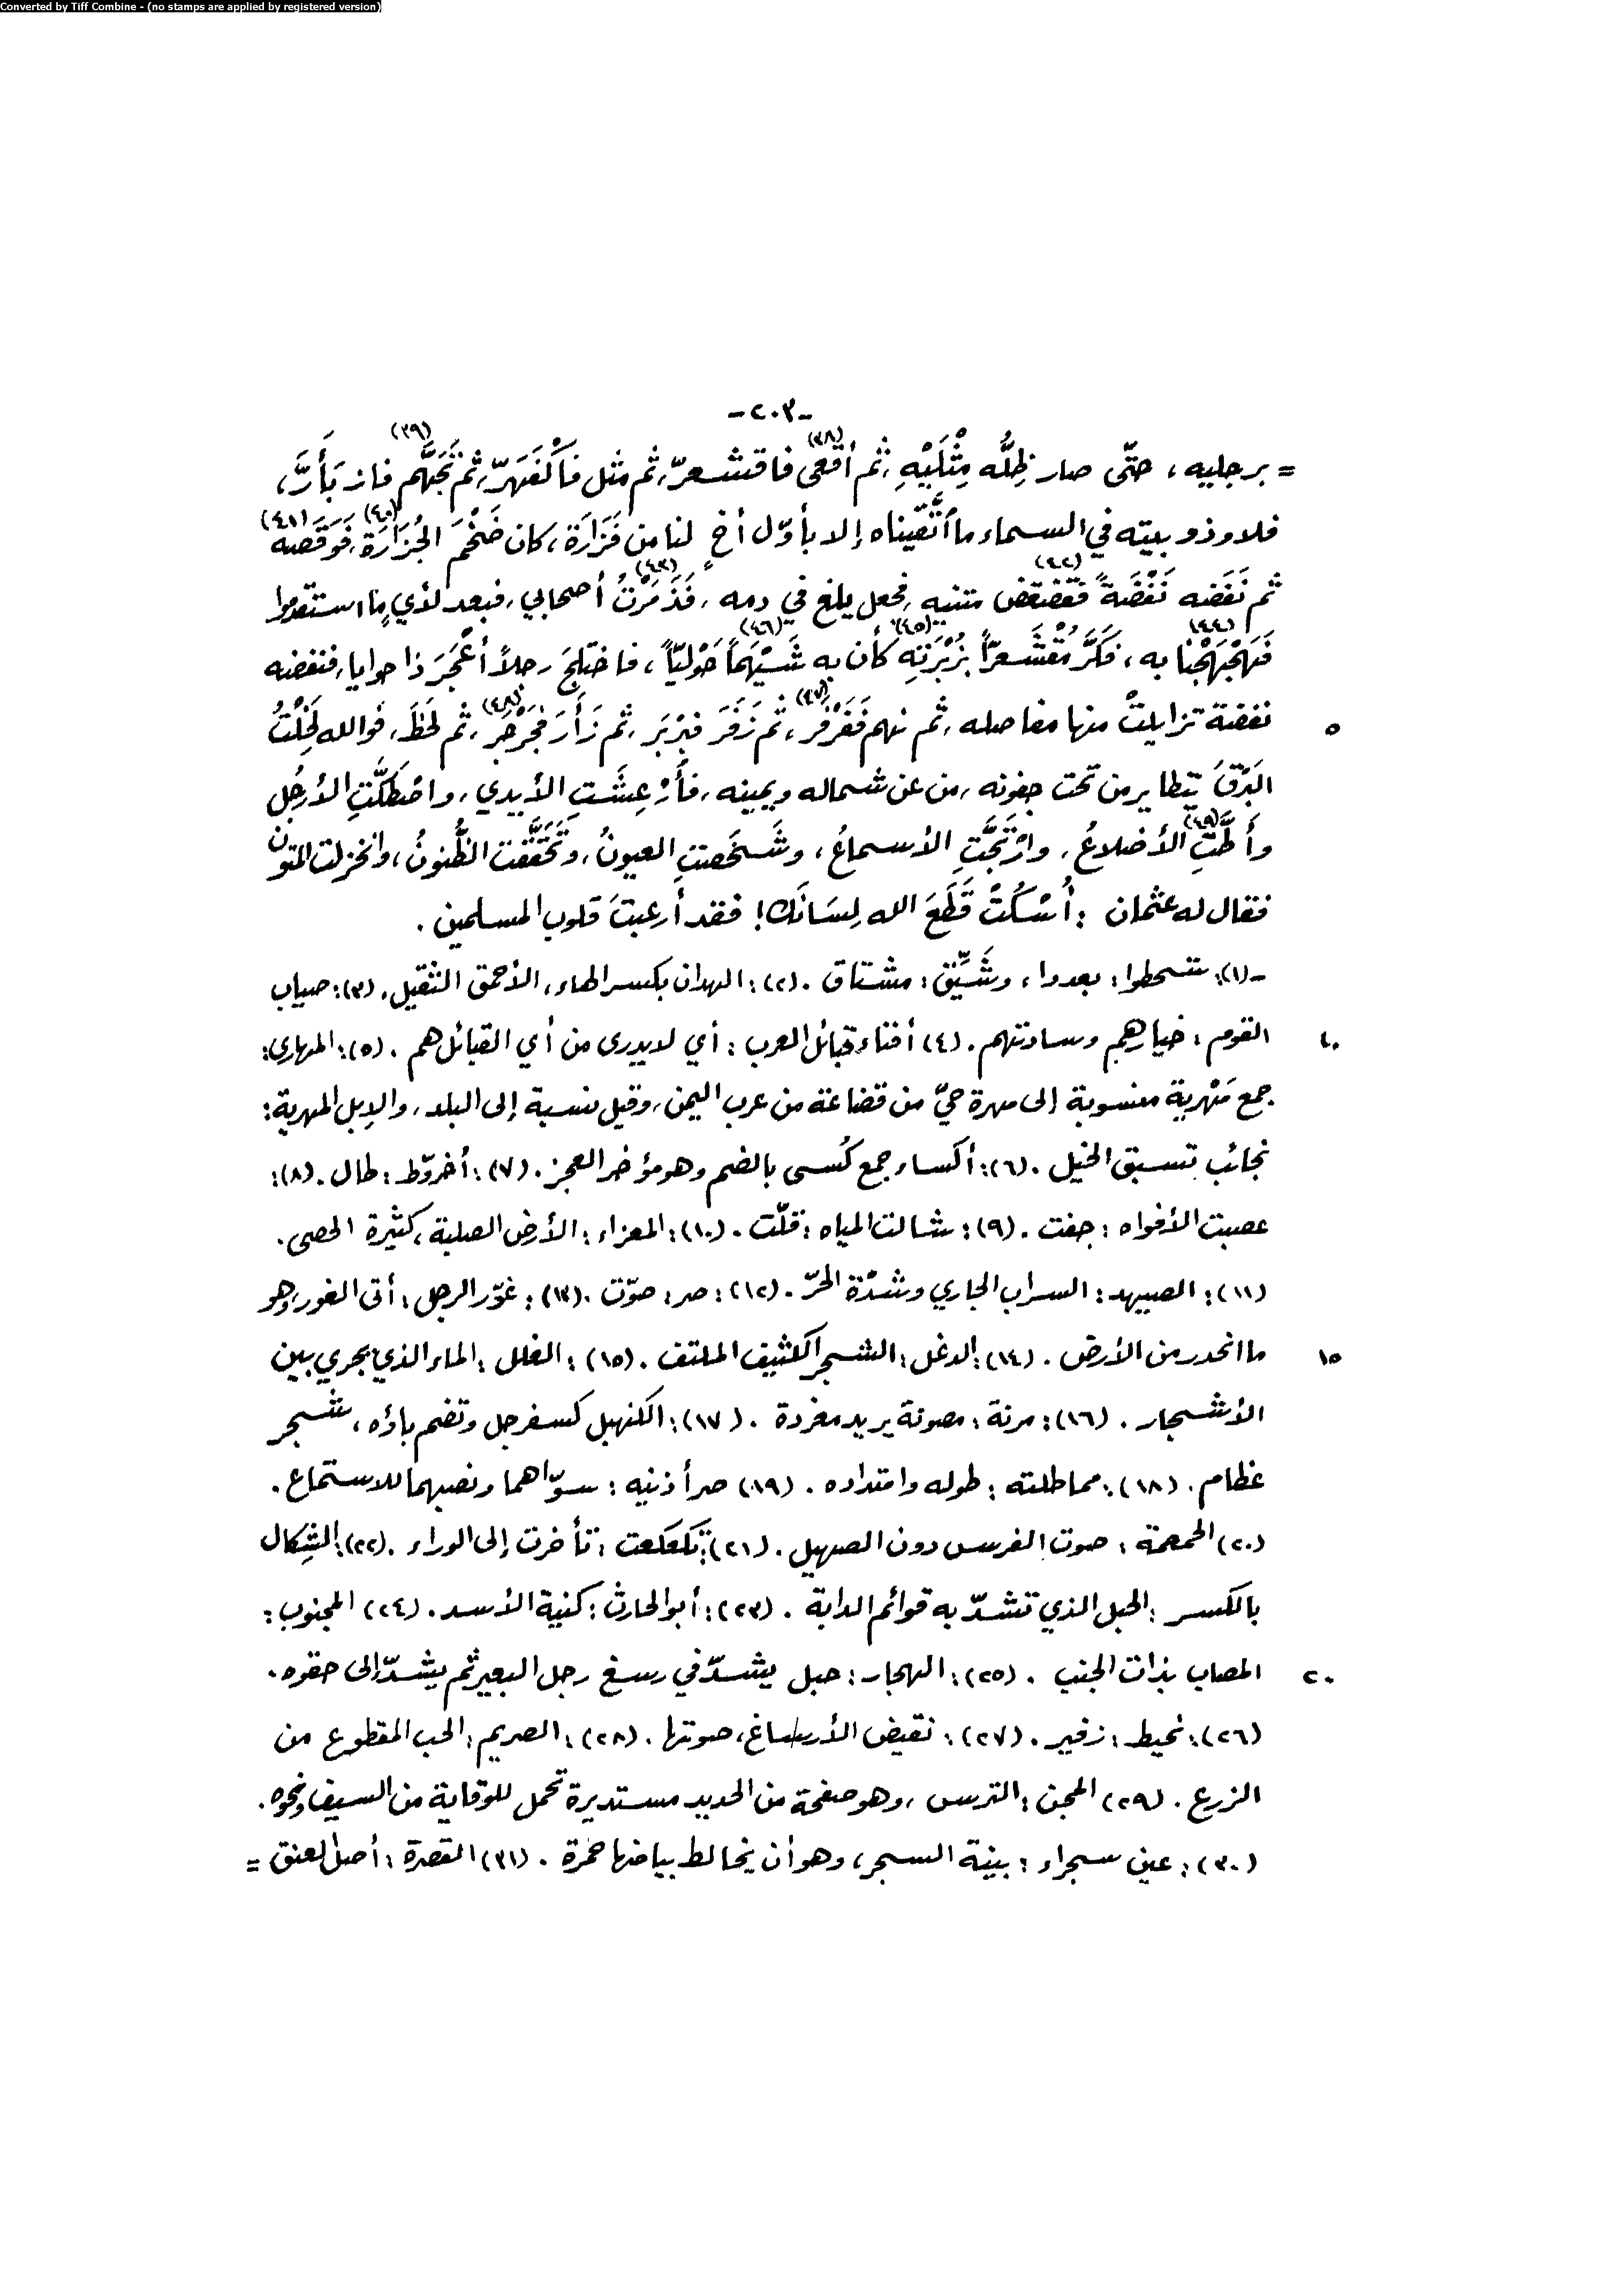 Converted by Tiff Combine - (no stamps are applied by registered version)
-٢٠٣-
= برجليه، حتّى صار ظِلُّه مِثْلَيْهِ، ثم أقعى (٣٨) فاقشعرّ، ثم مثل فاكْفَهَرّ، ثم تَجَهَّم (٣٩) فازبَأَرَّ،
فلا وذو بيته في السماء ما اتَّقَيناه إلا بأوّل أخٍ لنا من فَزَارَة، كان ضَخْمَ الجُزَارَة (٤٠)، فَوَقَصَه (٤١)
ثم نَفَضَه نَفْضَةً فقضقض (٤٢) متنيه، فجعل يلغ في دمه، فَذَمَرْتُ (٤٣) أصحابي، فبعد لأيٍ ما استقدموا
فَهَجْهَجْنا (٤٤) به، فَكَرَّ مُقْشَعِرّاً بزُبْرَتِهِ (٤٥) كأن به شَيْهَماً (٤٦) حَوْليّاً، فاختلجَ رجلاً أعْجَرَ ذا حوايا، فنفضه
نفضة تزايلتْ منها مفاصله، ثم نهم فَفَرْفَر (٤٧)، ثم زَفَرَ فبَرْبَر، ثم زَأَرَ فجَرْجَر (٤٨)، ثم لَحَظَ، فوالله لَخِلْتُ
٥
البَرْقَ يتطاير من تحت جفونه، من عن شماله ويمينه، فأُرْعِشَتِ الأيدي، واصْطَكَّتِ الأرجُل
وأطَّتِ (٤٩) الأضلاعُ، وارْتَجَّتِ الأسماعُ، وشَخَصتِ العيونُ، وتَحَقَّقت الظُّنونُ، وانخزلت المتون
فقال له عثمان : اُسْكُتْ قَطَعَ الله لِسَانَك! فقد أرعبتَ قلوب المسلمين .
-(١): شحطوا: بعدوا، وشَيِّق: مشتاق . (٢): الهدان بكسر الهاء، الأحمق الثقيل . (٣): صياب
القوم: خيارهم وسادتهم . (٤) أفناء قبائل العرب : أي لا يدرى من أي القبائل هم . (٥): المهارى:
١٠
جمع مَهْرية منسوبة إلى مهرة حيّ من قضاعة من عرب اليمن، وقيل نسبة إلى البلد، والإبل المهرية:
نجائب تسبق الخيل . (٦): أكساء جمع كُسى بالضم وهو مؤخر العجز . (٧): أخروّط: طال . (٨):
عصبت الأفواه : جفت . (٩): شالت المياه: قلّت . (١٠): المعزاء: الأرض الصلبة، كثيرة الحصى .
(١١): الصيهد: السراب الجاري وشدّة الحرّ . (١٢): صر: صوّت . (١٣): غوّر الرجل: أتى الغور، وهو
ما انحدر من الأرض . (١٤): الدغل: الشجر الكثيف الملتف . (١٥): الغلل: الماء الذي يجري بين
١٥
الأشجار . (١٦): مرنة: مصوتة يريد مغردة . (١٧): الكنهبل كسفرجل وتضم باؤه، شجر
عظام . (١٨): مماطلته: طوله وامتداده . (١٩) صر أذنيه: سوّاهما ونصبهما للاستماع .
(٢٠) الحمحمة: صوت الفرس دون الصهيل . (٢١): تكعكعت: تأخرت إلى الوراء . (٢٢): الشِكال
بالكسر: الحبل الذي تشدّ به قوائم الدابة . (٢٣): أبو الحارث: كنية الأسد . (٢٤) المجنوب:
المصاب بذات الجنب . (٢٥): الهجار: حبل يشدّ في رسغ رجل البعير ثم يشدّ إلى حقوه .
٢٠
(٢٦): نحيط: زفير . (٢٧): نقيض الأرساغ، صوتها . (٢٨): الصريم: الحب المقطوع من
الزرع . (٢٩) المجن: الترس، وهو صفحة من الحديد مستديرة تحمل للوقاية من السيف ونحوه .
(٣٠): عين سجراء: بينة السجر، وهو أن يخالط بياضها حمرة . (٣١) القصرة: أصل العنق =